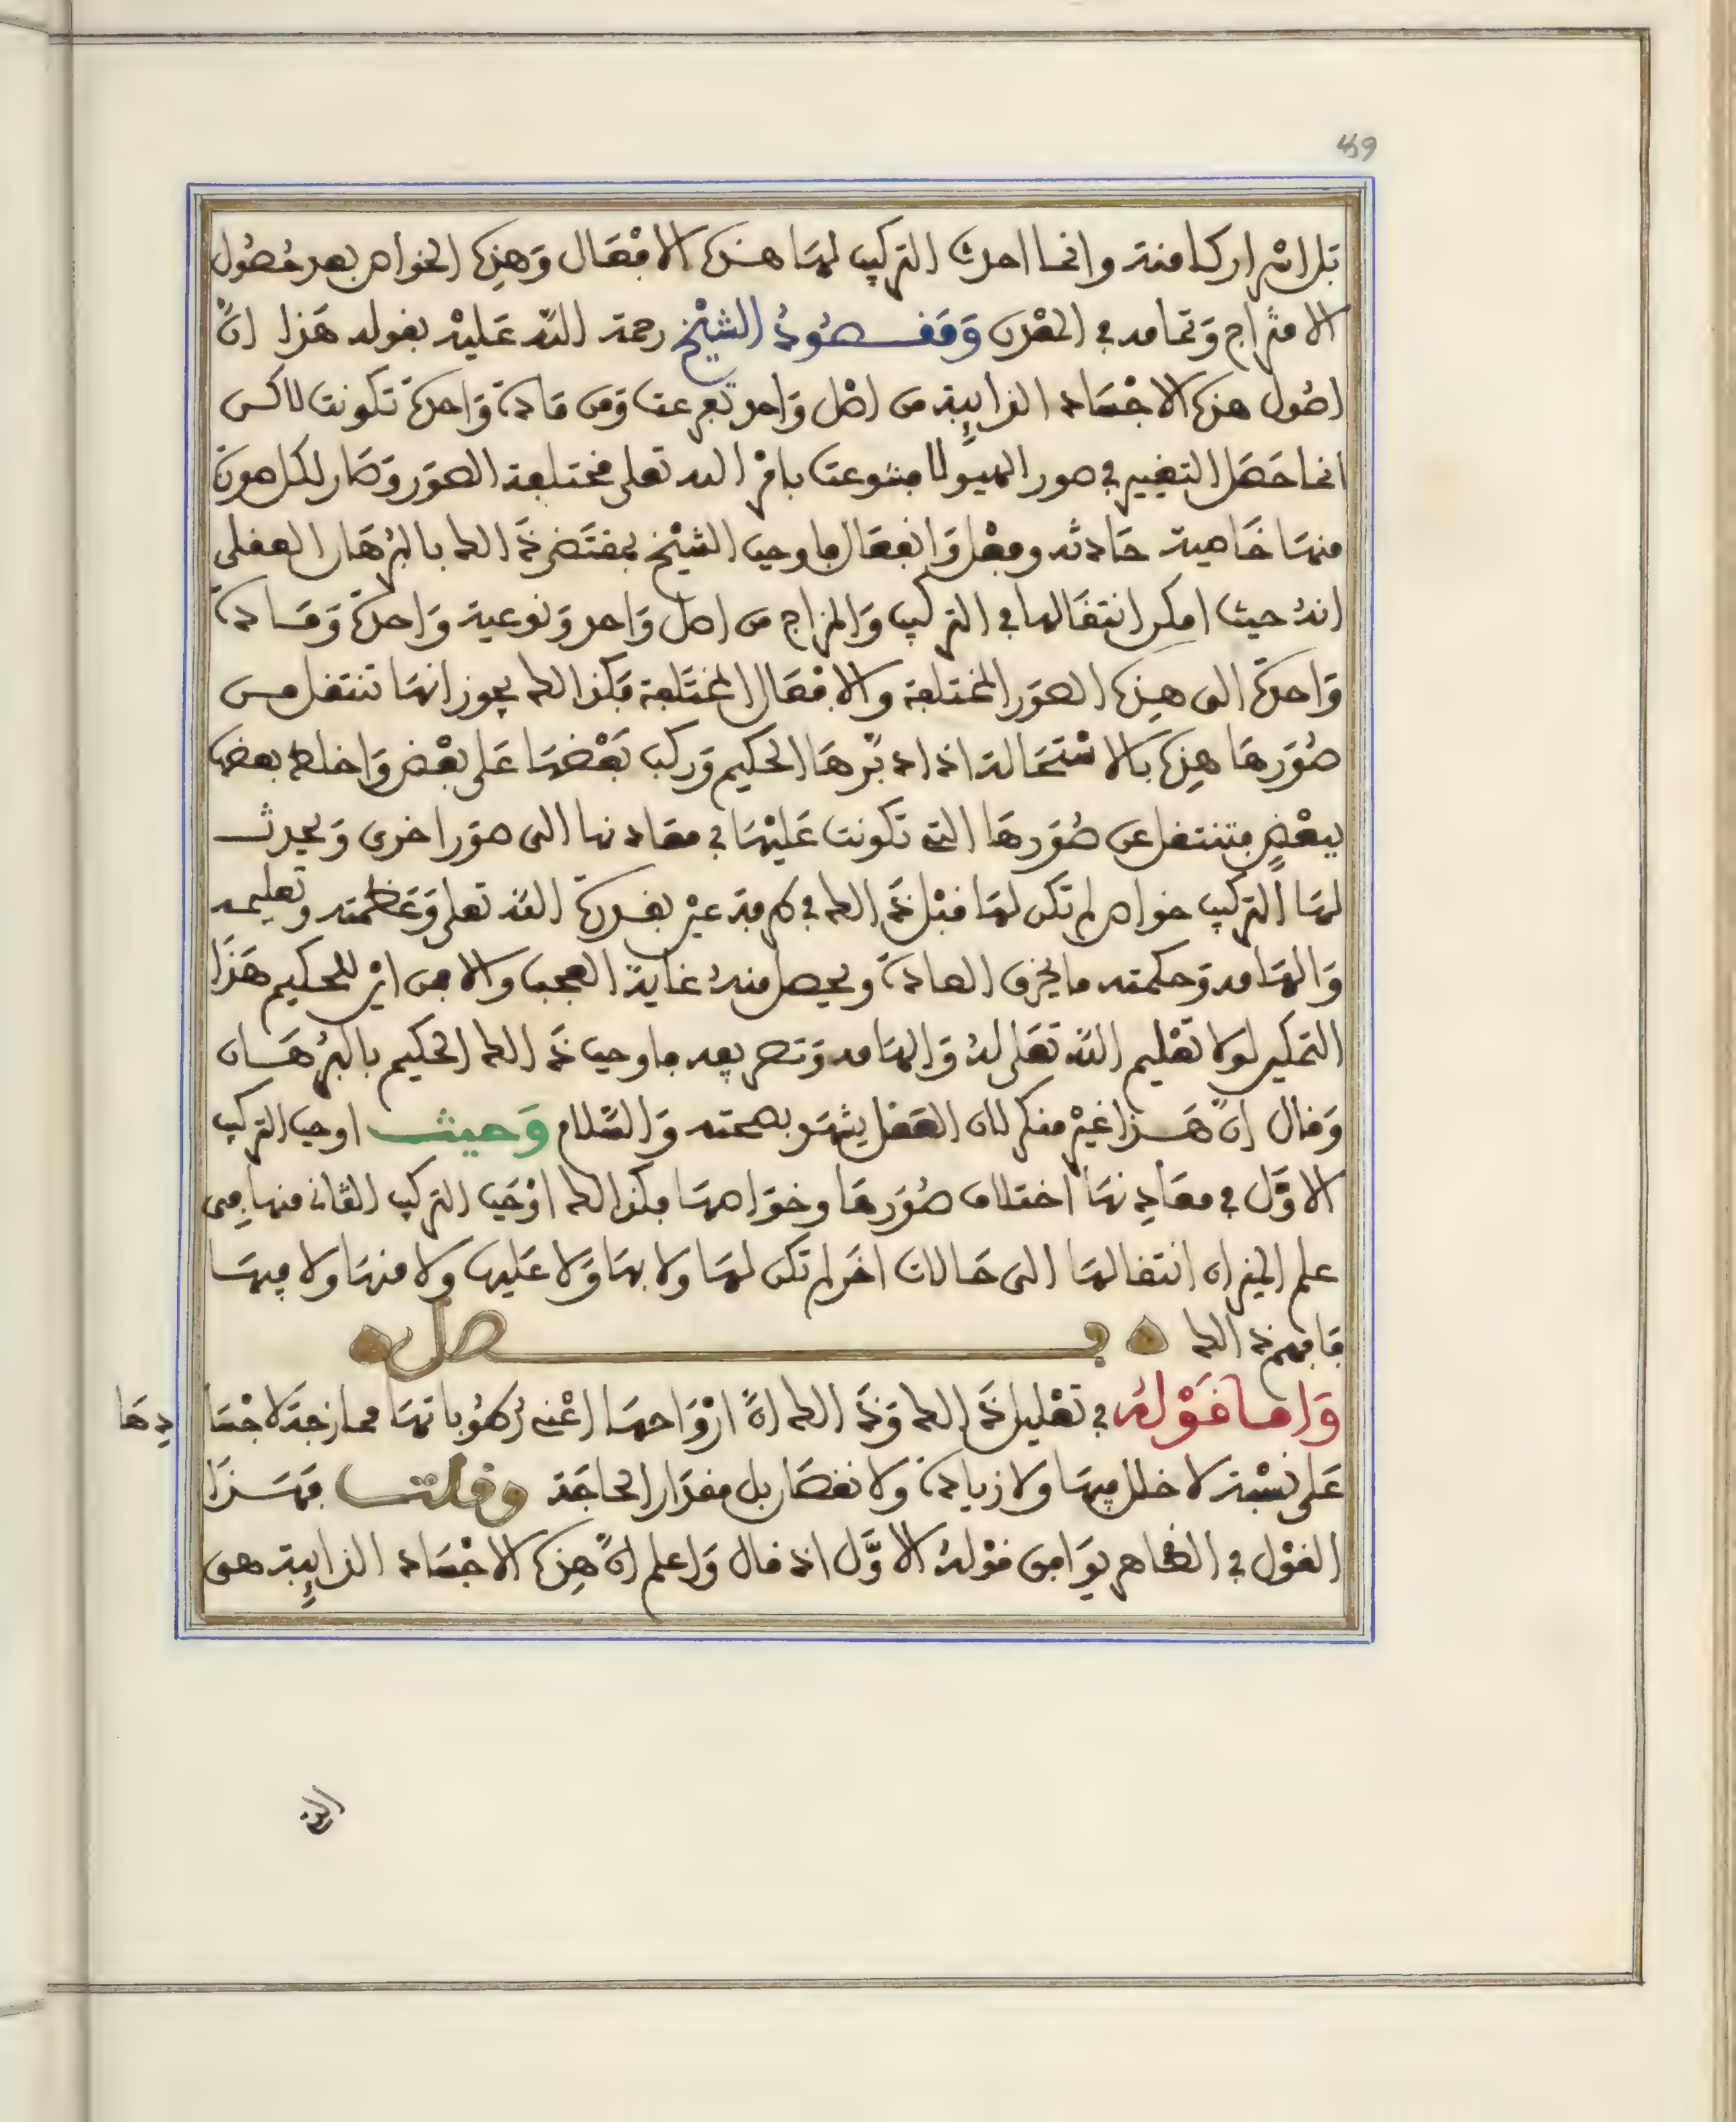 459
تلك الاسرار كامنة وانما احدث التركيب لها هذه الافعال وهذه الخواص بعد حصول
الامتزاج وتمامه في المعدن ومقصود الشيخ رحمة الله عليه بقوله هذا انّ
اصول هذه الاجساد الذايبة من اصل واحد تفرعت ومن مادة واحدة تكونت لاكن
انما حصل التغيير في صور الهيولا فتنوعت بامر الله تعلى مختلفة الصور وصار لكل صورة
منها خاصية حادثه وفعل وانفعال فاوجب الشيخ بمقتضى ذالك بالبرهان العقلى
انه حيث امكن انتقالها في التركيب والمزاج من اصل واحد ونوعية واحدة ومادة
واحدة الى هذه الصور المختلفة والافعال المختلفة فكذالك يجوز انها تنتقل من
صورها هذه بالاستحالة اذا دبّرها الحكيم وركب بعضها على بعض واخلط بعضها
ببعض فتنتقل عن صورها التي تكونت عليها في معادنها الى صور اخرى ويحدث
لها التركيب خواص لم تكن لها قبل ذالك في كرفة عين بقدرة الله تعلى وعظمته وتعليمه
والهامه وحكمته ما يخرق العادة ويحصل منه غاية العجب والا من اين للحكيم هذا
التمكين لولا تعليم الله تعلى له والهامه وتصريفه فاوجب ذالك الحكيم بالبرهان
وقال انّ هذا غير منكر لان العقل يشهد بصحته والسّلام وحيث اوجب التركيب
الاوّل في معادنها اختلاف صورها وخواصها فكذالك اوجب التركيب الثاني منها من
علم الميزان انتقالها الى حالات اخر لم تكن لها ولا بها ولا عليها ولا منها ولا فيها
فافهم ذالك فصل
واما قوله في تعليل ذالك وذالك انّ ارواحها اعنى ركوباتها ممازجة لاجسادها
على نسبة لا خلل فيها ولا زيادة ولا نقصان بل مقدار الحاجة وقلت فهذا
القول في الظاهر يوافق قوله الاوّل اذ قال واعلم انّ هذه الاجساد الذايبة هى